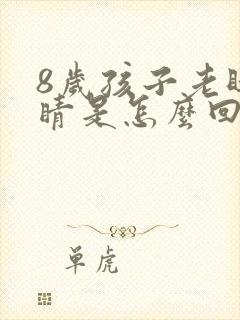 8歲孩子老眨
睛是怎麼回
单虎